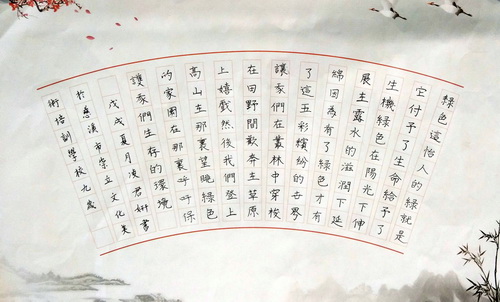 綠色這怡人的綠就是
它付予了生命給予了
生機綠色在陽光下伸
展在露水的滋潤下延
綿因為有了綠色才有
了這五彩繽紛的世界
讓我們在叢林中穿梭
在田野間歡奔在草原
上嬉戲然後我們登上
高山在那裏望眺綠色
的家園在那裏呼呼保
護我們生存的環境
戊戌夏月凌君妍書
於慈溪市崇立文化美
術培訓學校九歲